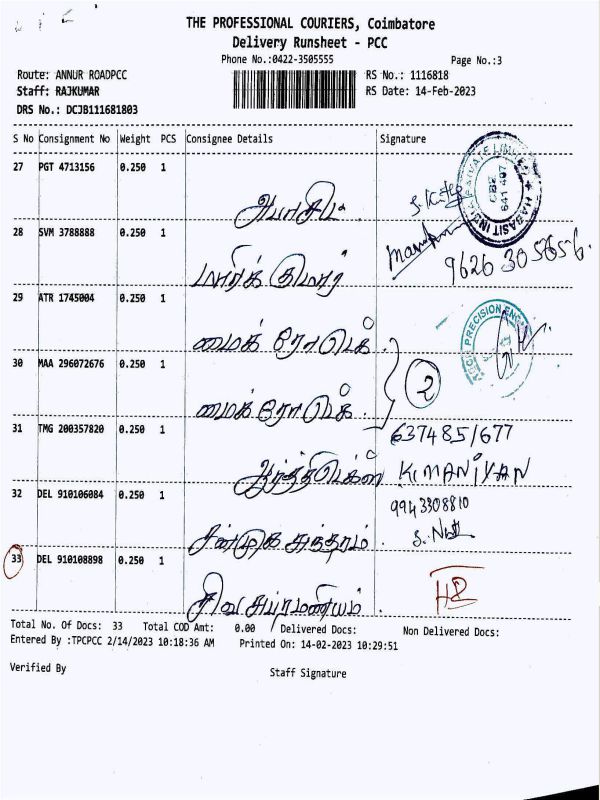 THE PROFESSIONAL COURIERS, Coimbatore
Delivery Runsheet - PCC
Phone No.:0422-3505555
Page No.:3
Route: ANNUR ROADPCC
RS No.: 1116818
Staff: RAJKUMAR
RS Date: 14-Feb-2023
DRS No.: DCJB111681803
S No Consignment No Weight PCS Consignee Details Signature
27 PGT 4713156 0.250 1
HABASIT INDIA PRIVATE LIMITED
CBE
641 407
28 SVM 3788888 0.250 1
9626 305656.
29 ATR 1745004 0.250 1
மைக் ரோ டெக்
PRECISION
30 MAA 296072676 0.250 1
மைக் ரோ டெக்
2
31 TMG 200357820 0.250 1
637485/677
K.MANIYAN
32 DEL 910106084 0.250 1
9943308810
சண்முக சுந்தரம்
33 DEL 910108898 0.250 1
சிவ சுப்ரமணியம்
Total No. Of Docs: 33 Total COD Amt: 0.00 Delivered Docs: Non Delivered Docs:
Entered By :TPCPCC 2/14/2023 10:18:36 AM Printed On: 14-02-2023 10:29:51
Verified By
Staff Signature